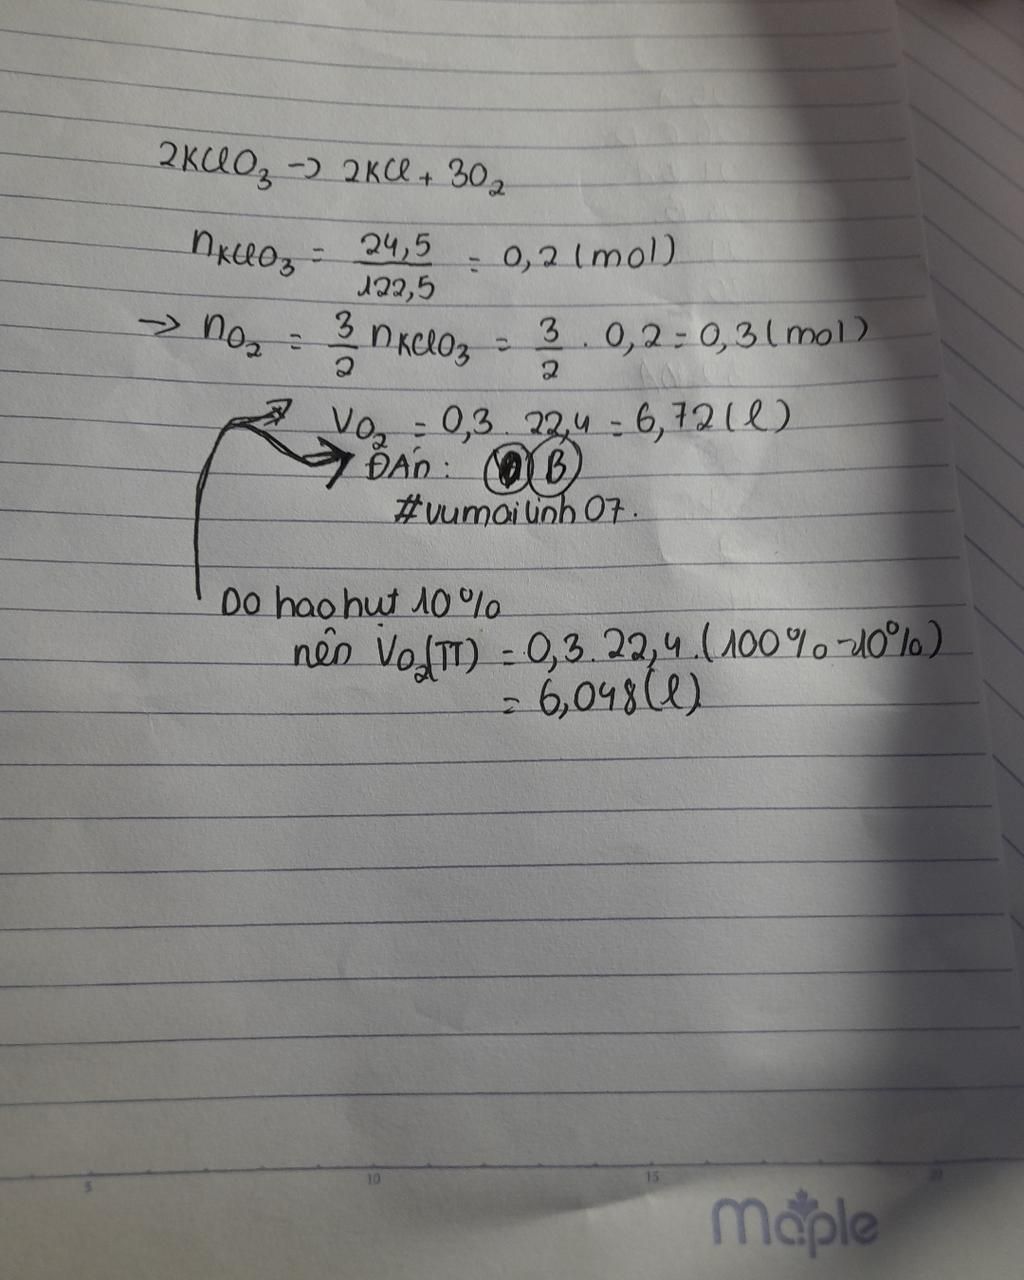 2KClO₃ → 2KCl + 3O₂
nKClO₃ = 24,5/122,5 = 0,2 (mol)
→ nO₂ = 3/2 nKClO₃ = 3/2 . 0,2 = 0,3 (mol)
VO₂ = 0,3 . 22,4 = 6,72 (l)
ĐÁn : B
#vumailinh07.
Do hao hụt 10%
nên VO₂(TT) = 0,3 . 22,4 . (100% - 10%)
= 6,048 (l)
5 10 15 20
Maple